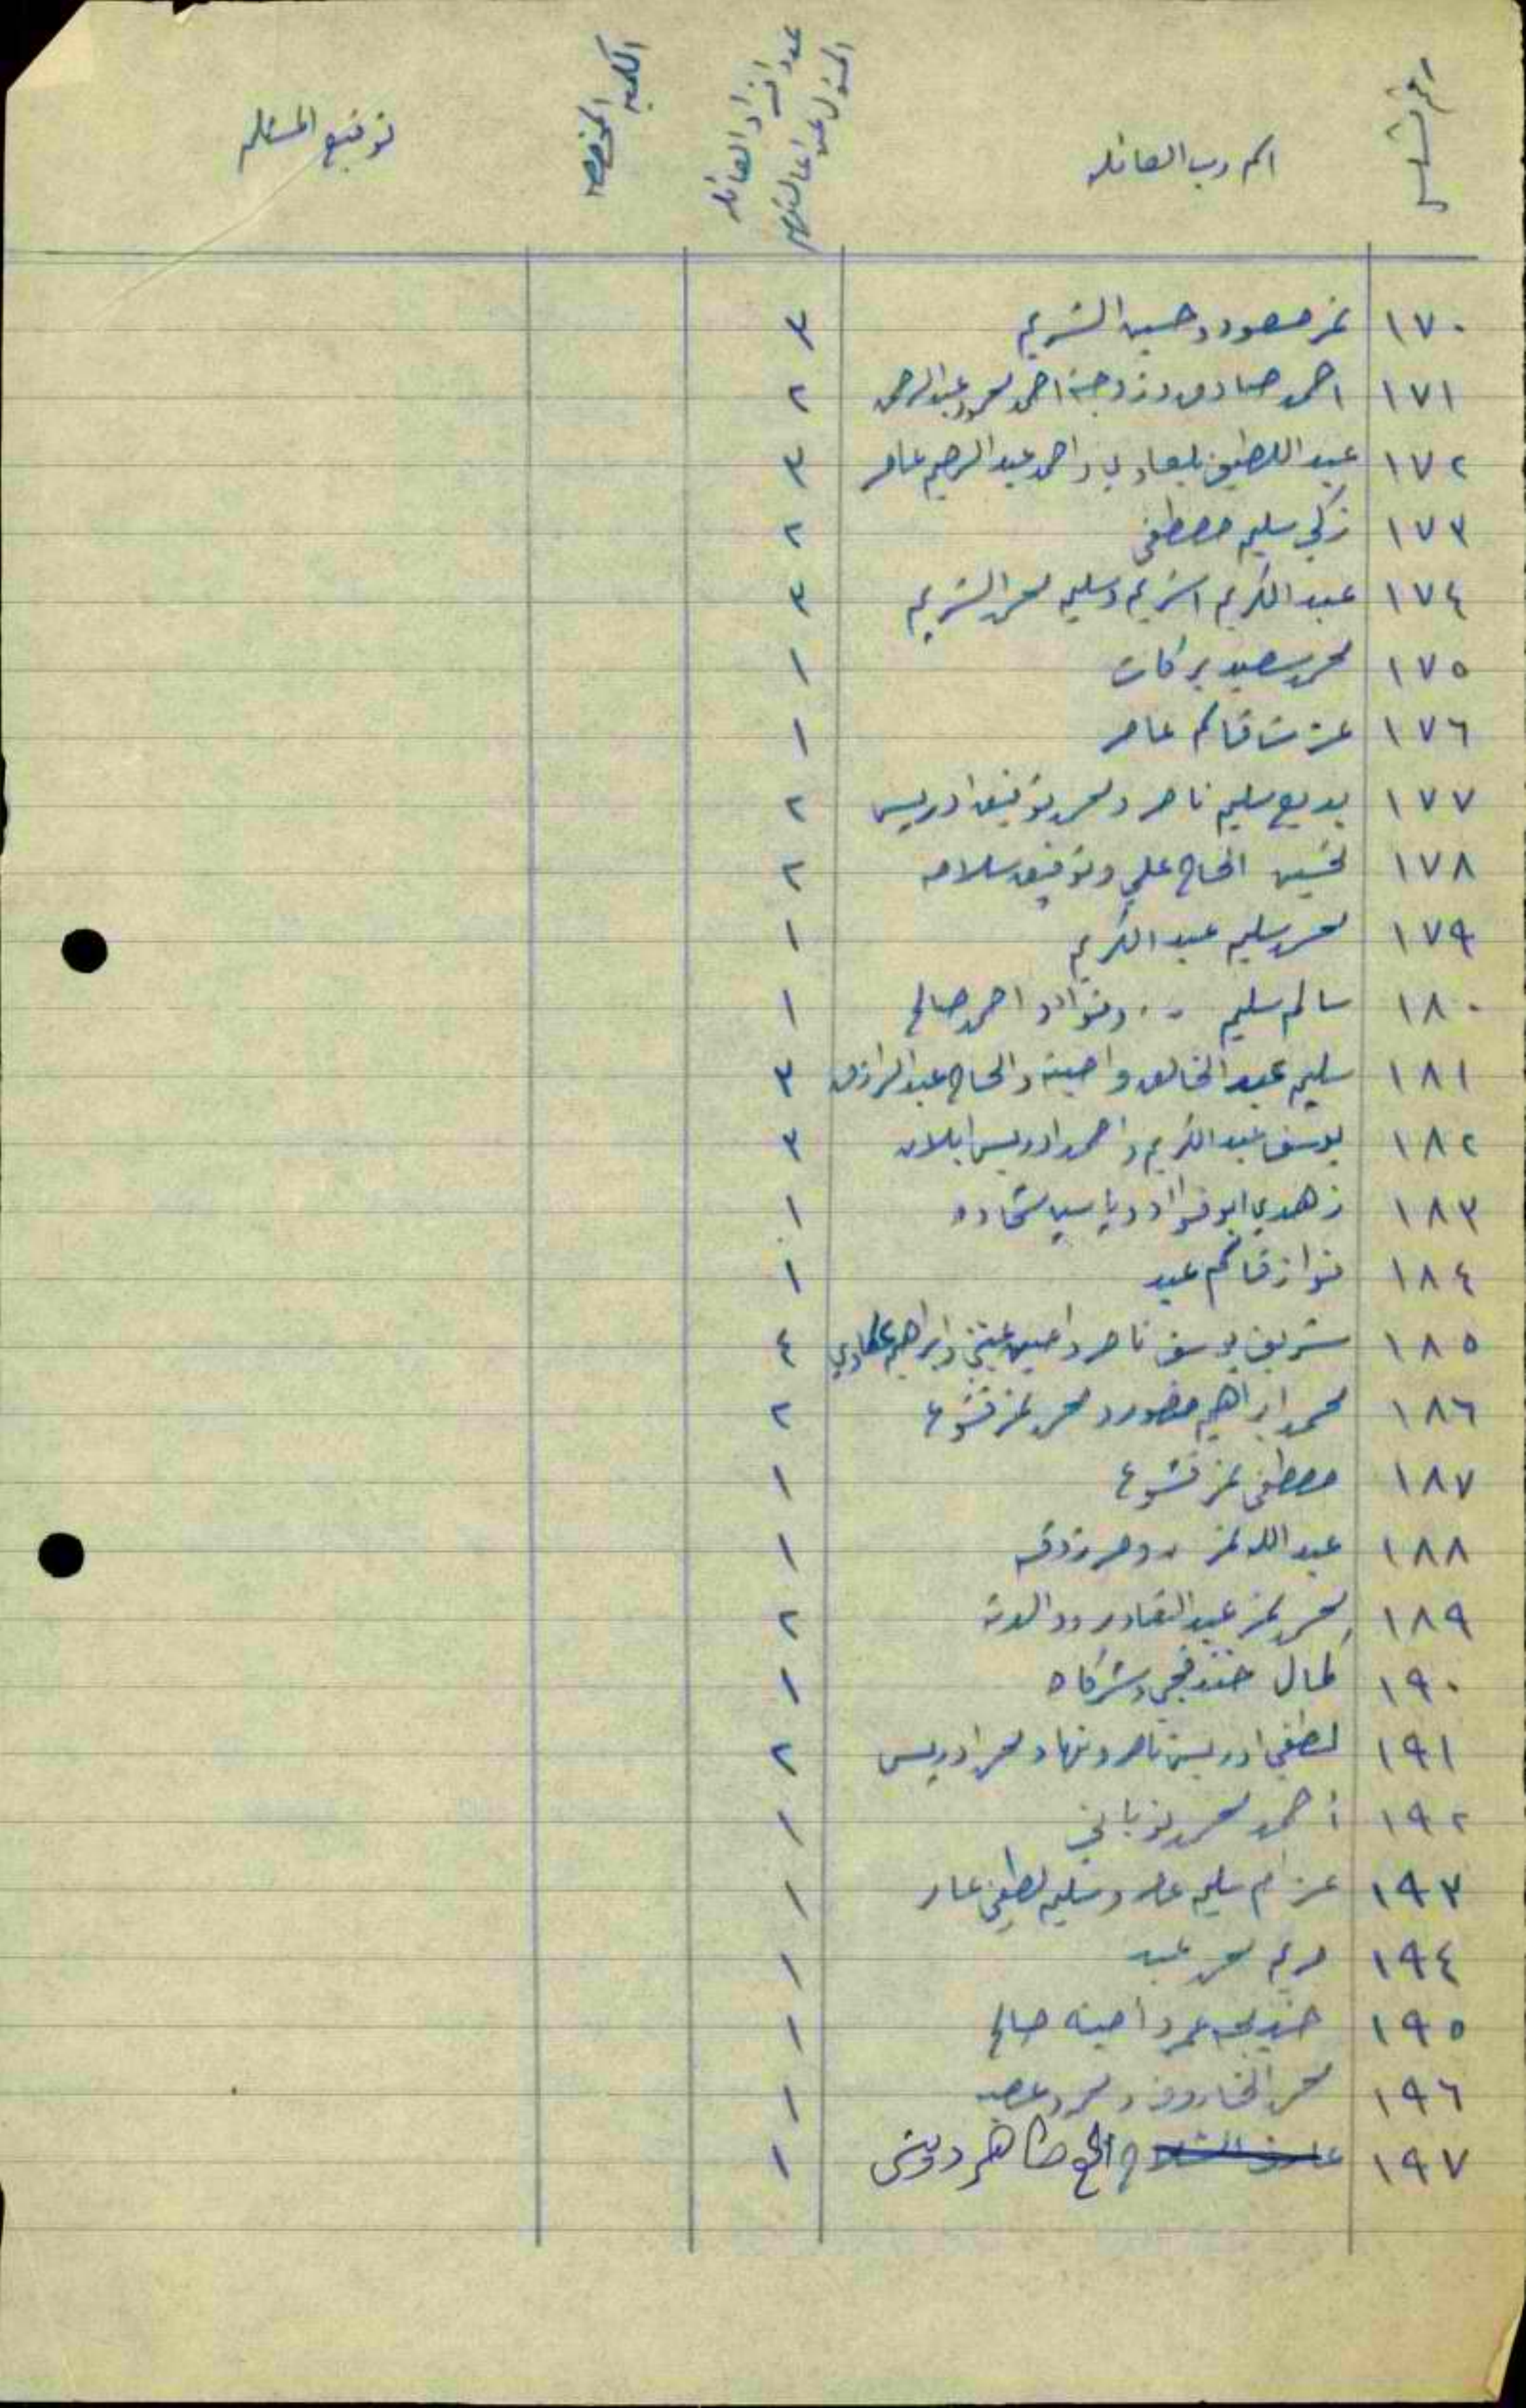 الرقم المتسلسل اسم رب العائلة عدد افراد العائلة المسئول عن اعالتهم الكمية المخصصة توقيع المستلم
١٧٠ نمر مسعود وحسين اشريم ٣
١٧١ احمد صادق وزوجة احمد محمود عبد الرحمن ٢
١٧٢ عبد اللطيف بلعاوي واحمد عبد الرحيم عامر ٣
١٧٣ زكي سليم مصطفى ٢
١٧٤ عبد الكريم اشريم وسليم محمد اشريم ٣
١٧٥ محمد سعيد بركات ١
١٧٦ عزت قاسم عامر ١
١٧٧ بديع سليم ناصر ومحمد توفيق ادريس ٢
١٧٨ تحسين الحاج علي وتوفيق سلامه ٢
١٧٩ محمد سليم عبد الكريم ١
١٨٠ سالم سليم ،، وفؤاد احمد صالح ١
١٨١ سليم عبد الخالق وامينة والحاج عبد الرازق ٣
١٨٢ يوسف عبد الكريم واحمد ادريس ٣
١٨٣ زهدي ابو فؤاد وياسين شحاده ١
١٨٤ فواز قاسم عبد ١
١٨٥ شريف يوسف ناصر وامين وابراهيم ٤
١٨٦ محمد ابراهيم منصور ومحمد نمر قشوع ٢
١٨٧ مصطفى نمر قشوع ١
١٨٨ عبد الله نمر ،، ومرزوقه ١
١٨٩ محمد نمر عبد القادر ووالدته ٢
١٩٠ كمال خندقجي وشركاه ١
١٩١ لطفي ادريس ناصر ونهاد محمد ادريس ٢
١٩٢ أحمد محمد نوباني ١
١٩٣ عزام سليم عامر وسليم لطفي عامر ١
١٩٤ مريم محمد عبد ١
١٩٥ خديجه عمر وامينه صالح ١
١٩٦ محمد الخاروف ومحمود ١
١٩٧ الحج طاهر درويش ١